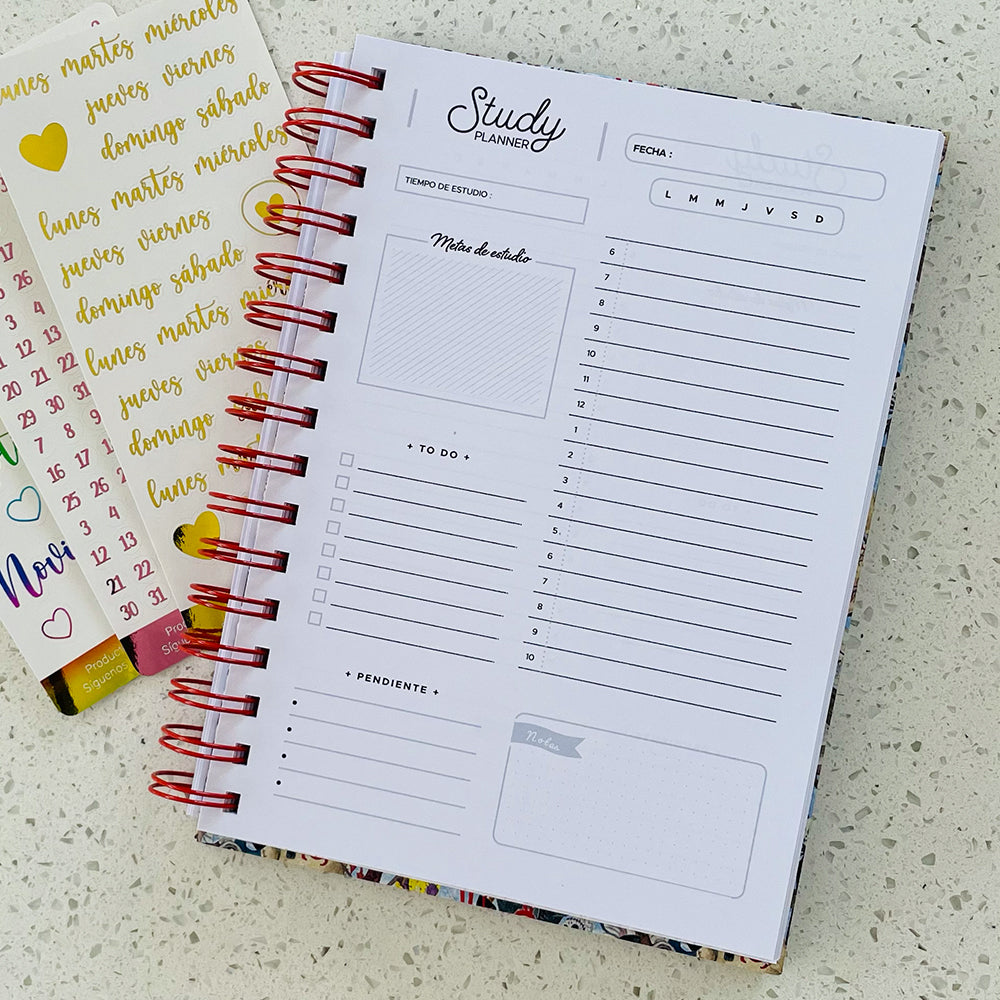 lunes martes miércoles
jueves viernes
domingo sábado
lunes martes miércoles
jueves viernes
domingo sábado
lunes martes
jueves viernes
domingo
lunes
17
26
3 4
12 13
20 21 22
29 30 31
7 8 9
16 17
25 26
3 4
12 13
21 22
30 31
Novi
Síguenos
Study
PLANNER
FECHA :
L M M J V S D
TIEMPO DE ESTUDIO :
Metas de estudio
+ TO DO +
+ PENDIENTE +
6
7
8
9
10
11
12
1
2
3
4
5
6
7
8
9
10
Notas